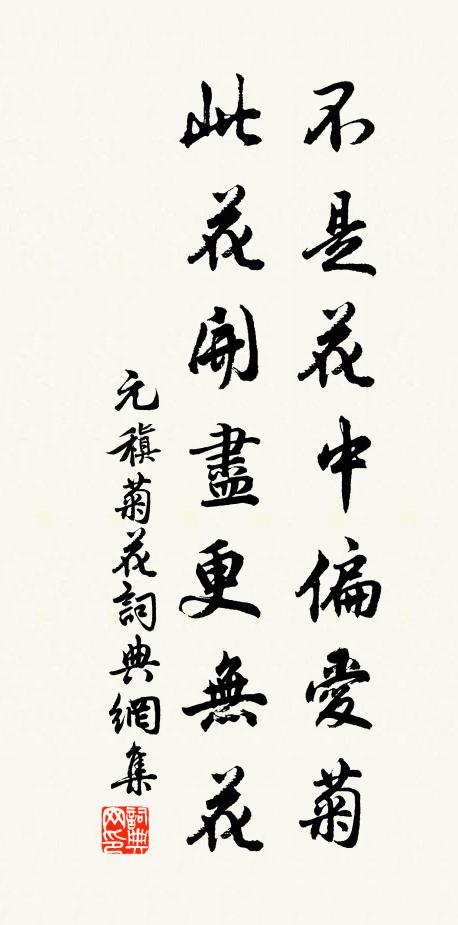 不是花中偏愛菊
此花開盡更無花
元稹菊花詞典網集
詞典網印